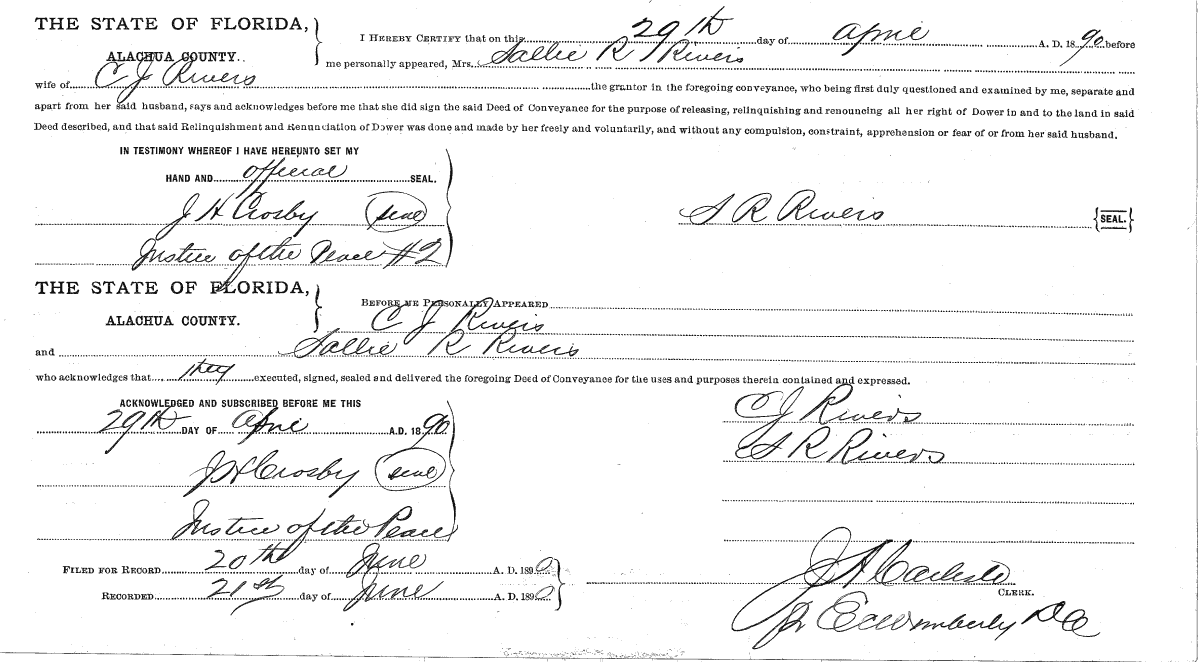 THE STATE OF FLORIDA,
ALACHUA COUNTY.
I HEREBY CERTIFY that on this 29th day of April A. D. 1890, before
me personally appeared, Mrs. Sallie R Rivers
wife of C J Rivers the grantor in the foregoing conveyance, who being first duly questioned and examined by me, separate and
apart from her said husband, says and acknowledges before me that she did sign the said Deed of Conveyance for the purpose of releasing, relinquishing and renouncing all her right of Dower in and to the land in said
Deed described, and that said Relinquishment and Renunciation of Dower was done and made by her freely and voluntarily, and without any compulsion, constraint, apprehension or fear of or from her said husband.
IN TESTIMONY WHEREOF I HAVE HEREUNTO SET MY
HAND AND official SEAL.
J H Crosby (seal)
S R Rivers {SEAL.}
Justice of the Peace #2
THE STATE OF FLORIDA,
ALACHUA COUNTY.
BEFORE ME PERSONALLY APPEARED
C J Rivers
and Sallie R Rivers
who acknowledges that they executed, signed, sealed and delivered the foregoing Deed of Conveyance for the uses and purposes therein contained and expressed.
ACKNOWLEDGED AND SUBSCRIBED BEFORE ME THIS
29th DAY OF April A.D. 1890
J H Crosby (seal)
Justice of the Peace
C J Rivers
S R Rivers
FILED FOR RECORD 20th day of June A. D. 1890
RECORDED 21st day of June A. D. 1890
J A Carlisle
CLERK.
Wimberly DC